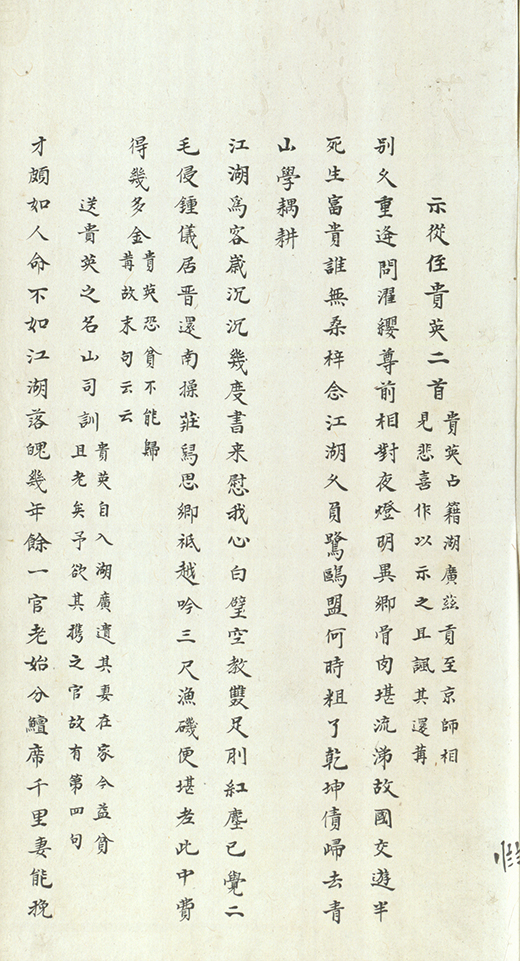 示從侄貴英二首
貴英占籍湖廣茲貢至京師相
見悲喜作以示之且諷其還葬
別久重逢問濯纓尊前相對夜燈明異鄉骨肉堪流涕故國交遊半
死生富貴誰無桑梓念江湖久負鷺鷗盟何時粗了乾坤債歸去青
山學耦耕
江湖爲客歲沉沉幾度書来慰我心白璧空教雙足刖紅塵已覺二
毛侵鍾儀居晉還南操莊舄思鄉祗越吟三尺漁磯便堪老此中費
得幾多金
貴英恐貧不能歸
葬故末句云云
送貴英之名山司訓
貴英自入湖廣遺其妻在家今益貧
且老矣予欲其携之官故有第四句
才頗如人命不如江湖落魄幾年餘一官老始分鱣席千里妻能挽